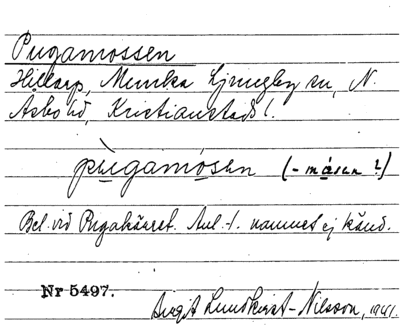 Pugamossen
Hillarp, Munka Ljungby sn, N.
Åsbo hd, Kristianstads l.
pùgamósen (-måsen?)
Bel. vid Pugakärret. Anl. t. namnet ej känd.
Nr 5497.
Birgit Lundkvist-Nilsson, 1941.